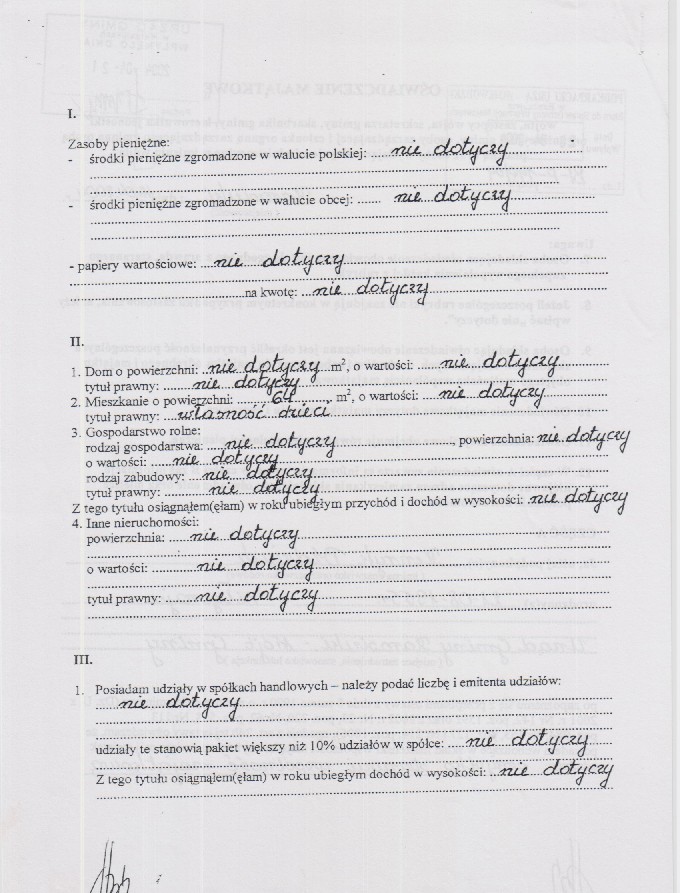 I.
Zasoby pieniężne:
- środki pieniężne zgromadzone w walucie polskiej: ...... nie dotyczy
- środki pieniężne zgromadzone w walucie obcej: ...... nie dotyczy
- papiery wartościowe: ... nie dotyczy
na kwotę: ... nie dotyczy
II.
1. Dom o powierzchni: nie dotyczy m², o wartości: ...... nie dotyczy
tytuł prawny: ...... nie dotyczy
2. Mieszkanie o powierzchni: ...... 64 ......, m², o wartości: ...... nie dotyczy
tytuł prawny: .... własność dzieci
3. Gospodarstwo rolne:
rodzaj gospodarstwa: .... nie dotyczy, powierzchnia: nie dotyczy
o wartości: ..... nie dotyczy
rodzaj zabudowy: ... nie dotyczy
tytuł prawny: ...... nie dotyczy
Z tego tytułu osiągnąłem(ęłam) w roku ubiegłym przychód i dochód w wysokości: nie dotyczy
4. Inne nieruchomości:
powierzchnia: ..... nie dotyczy
o wartości: ...... nie dotyczy
tytuł prawny: ...... nie dotyczy
III.
1. Posiadam udziały w spółkach handlowych – należy podać liczbę i emitenta udziałów:
nie dotyczy
udziały te stanowią pakiet większy niż 10% udziałów w spółce: .... nie dotyczy
Z tego tytułu osiągnąłem(ęłam) w roku ubiegłym dochód w wysokości: .. nie dotyczy